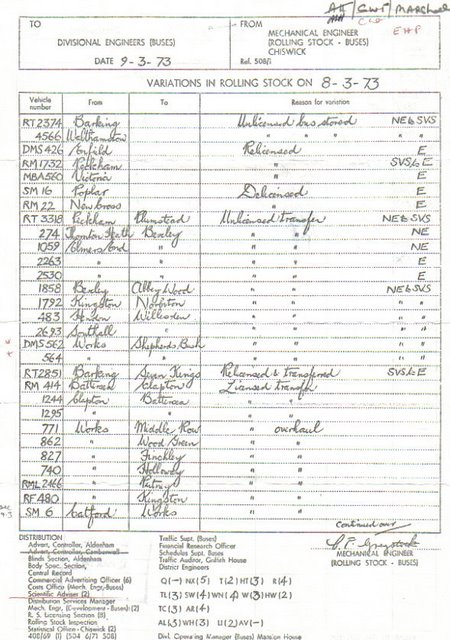 AH/GWT/MARSHALL
EHP
TO
DIVISIONAL ENGINEERS (BUSES)
DATE 9-3-73
FROM
MECHANICAL ENGINEER
(ROLLING STOCK - BUSES)
CHISWICK
Ref. 508/1
VARIATIONS IN ROLLING STOCK ON 8-3-73
Vehicle number From To Reason for variation
RT 2374 Barking Unlicensed bus stored NE to SVS
4566 Walthamstow " " " " "
DMS 426 Enfield Relicensed E
RM 1732 Peckham " SVS to E
MBA 560 Victoria " E
SM 16 Poplar Delicensed E
RM 22 New Cross " E
RT 3318 Peckham Plumstead Unlicensed transfer NE to SVS
274 Thornton Heath Bexley " " NE
1059 Elmers End " " " NE
2263 " " " " E
2530 " " " " E
1858 Bexley Abbey Wood " " NE to SVS
1792 Kingston Norbiton " " " "
483 Hendon Willesden " " " "
2693 Southall " " " " "
DMS 562 Works Shepherds Bush " " " "
564 " " " " " "
RT 2851 Barking Seven Kings Relicensed & transferred SVS to E
RM 414 Battersea Clapton Licensed transfer
1244 Clapton Battersea " "
1295 " " " "
771 Works Middle Row " overhaul
862 " Wood Green " "
827 " Finchley " "
740 " Holloway " "
RML 2466 " Putney " "
RF 480 " Kingston " "
SM 6 Catford Works " "
Continued over
MECHANICAL ENGINEER
(ROLLING STOCK - BUSES)
DISTRIBUTION
Advert. Controller, Aldenham
Advert. Controller, Camberwell
Blinds Section, Aldenham
Body Spec. Section,
Central Record
Commercial Advertising Officer (6)
Costs Office (Mech. Engr-Buses)
Scientific Adviser (2)
Distribution Services Manager
Mech. Engr. (Development - Buses) (2)
R. S. Licensing Section (8)
Rolling Stock Inspection
Statistical Office - Chiswick (2)
408/69 (1) (504 6/71 508)
Traffic Supt. (Buses)
Financial Research Officer
Schedules Supt. Buses
Traffic Auditor, Griffith House
District Engineers
Q(-) NX(5) T(2) HT(3) R(4)
TL(3) SW(4) WN(4) W(3) HW(2)
TC(3) AR(4)
AL(3) WH(3) U(2) AV(-)
Divl. Operating Manager (Buses) Mansion House